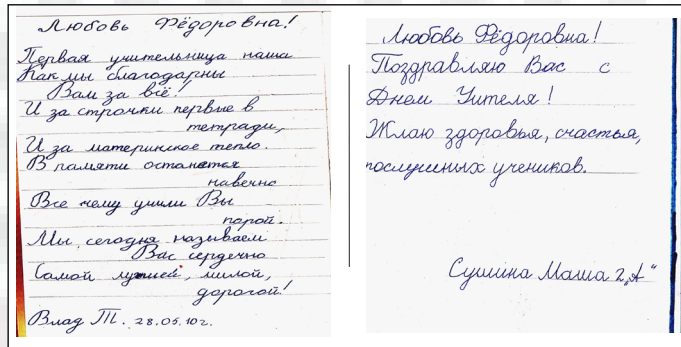 Любовь Фёдоровна!
Первая учительница наша
Как мы благодарны
Вам за всё!
И за строчки первые в
тетради,
И за материнское тепло.
В памяти останется
навечно
Все чему учили Вы
порой.
Мы сегодня называем
Вас сердечно
Самой лучшей, милой,
дорогой!
Влад Т. 28.05.10г.
Любовь Фёдоровна!
Поздравляю Вас с
Днем Учителя!
Жлаю здоровья, счастья,
послушных учеников.
Сушина Маша 2„А“